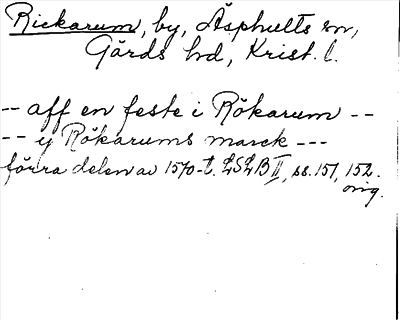 Rickarum, by, Äsphults sn,
Gärds hd, Krist. l.
-- aff en feste i Rökarum --
-- y Rökarums marck ---
förra delen av 1570-t. LSLB II, ss. 151, 152.
orig.